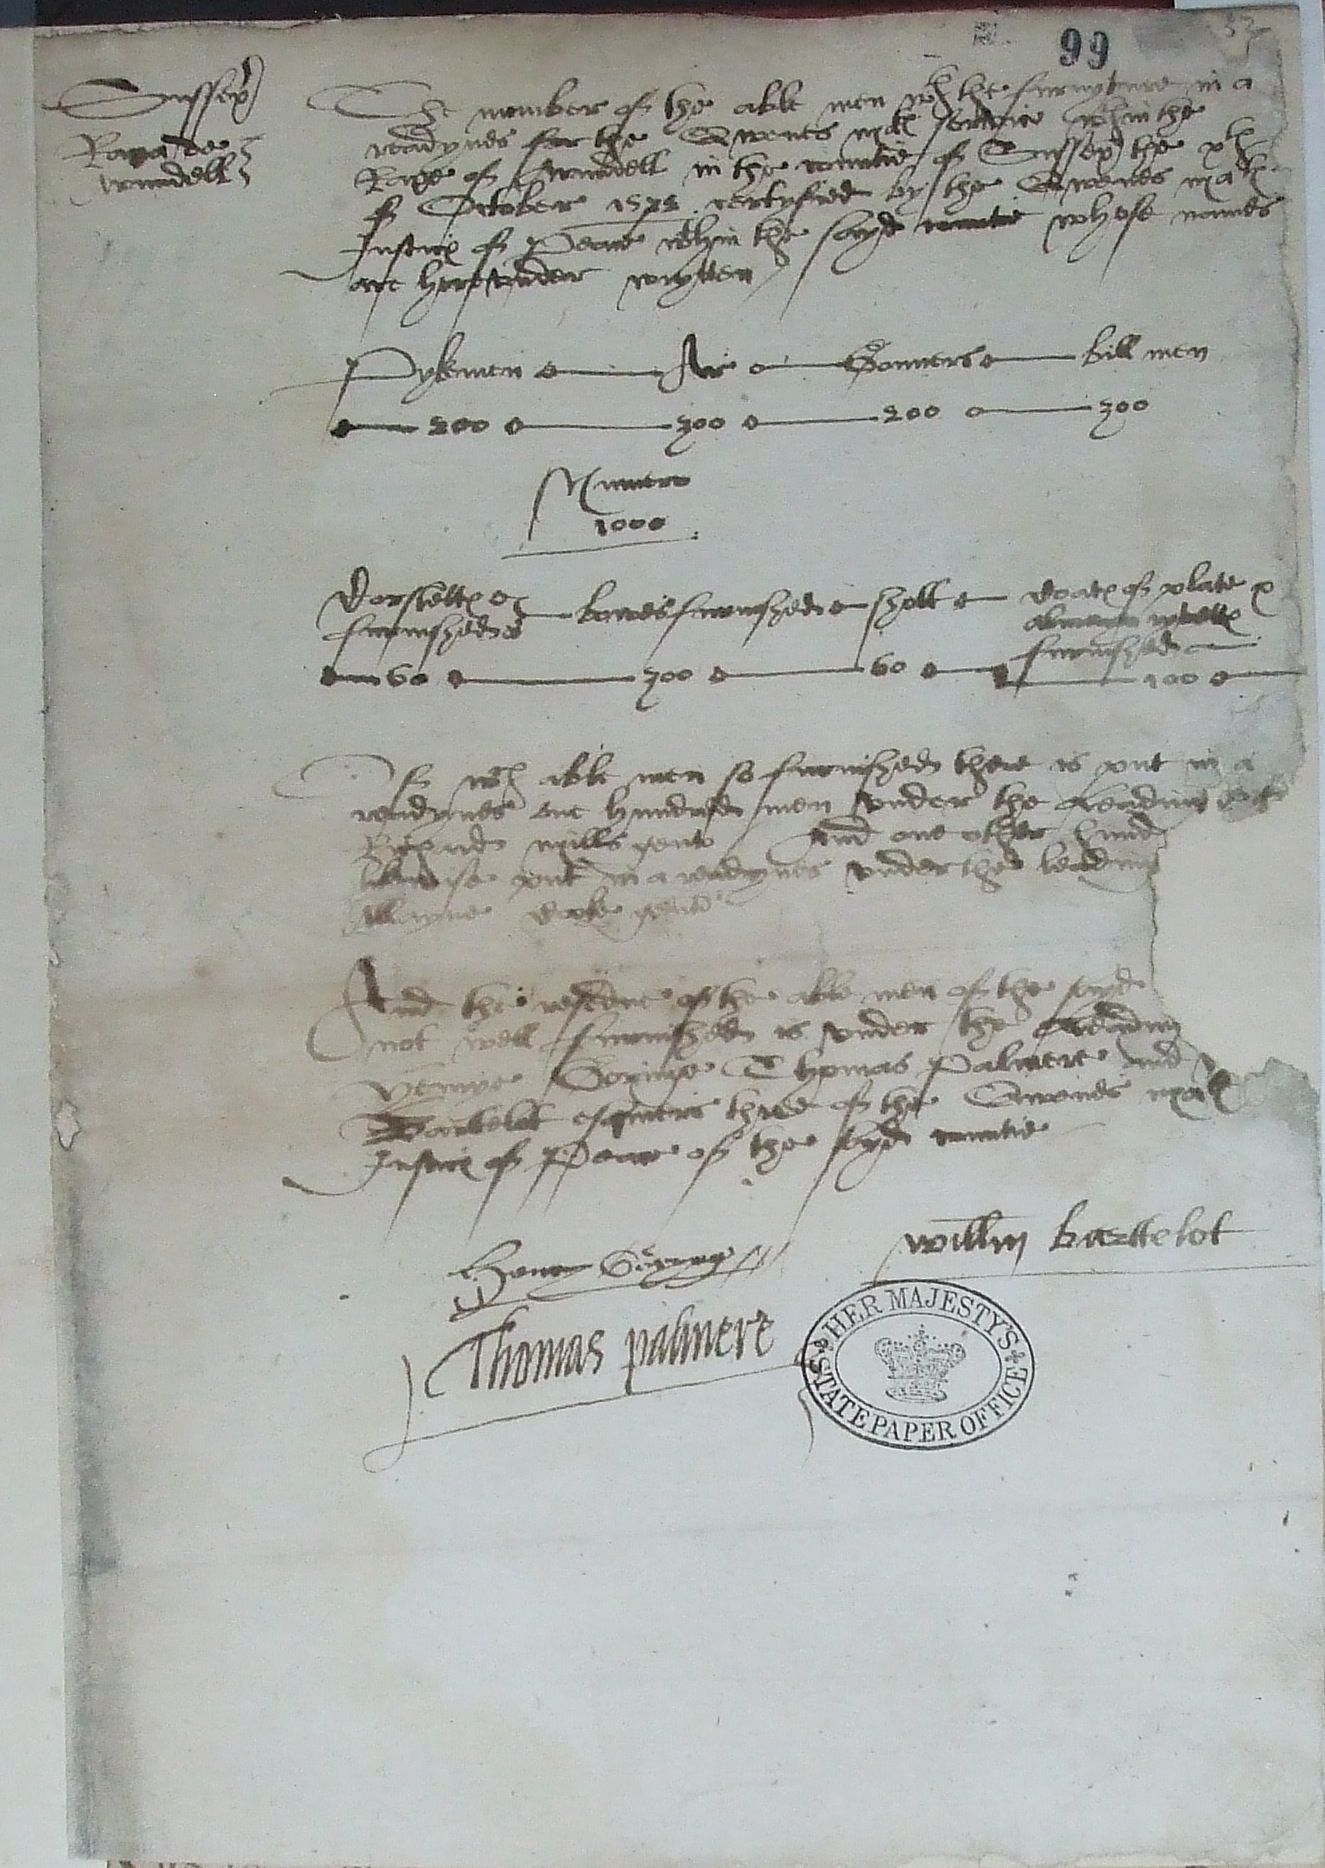 99
Sussex
Rapa de
Arundell
The number of the able men wth the furnyture in a
readynes for the Quenes matie service wthin the
Rape of Arundell in the countie of Sussex the xth
of October 1572 certyfied by the Quenes maties
Justices of Peace wthin the sayd countie whose names
are hereunder wrytten
Pykemen Ar Gonners bill men
200 300 200 300
Numero
1000
Corsletts bowes furnished shott Coats of plate
furnished almayn ryvetts
furnished
60 300 60 100
Of wch able men so furnished there is put in a
readynes one hundred men under the leading of
mylls gent And one other hund
likewise put in a readynes under the leading
Allayne gent
And the resedue of the able men of the sayd
not well furnished is under the leading
Henrye Goringe Thomas Palmere and
Bartelot esquiers three of the Quenes maties
Justices of Peace of the sayd countie
Henry Goryng
Willm bartelot
Thomas palmere
HER MAJESTY'S
STATE PAPER OFFICE